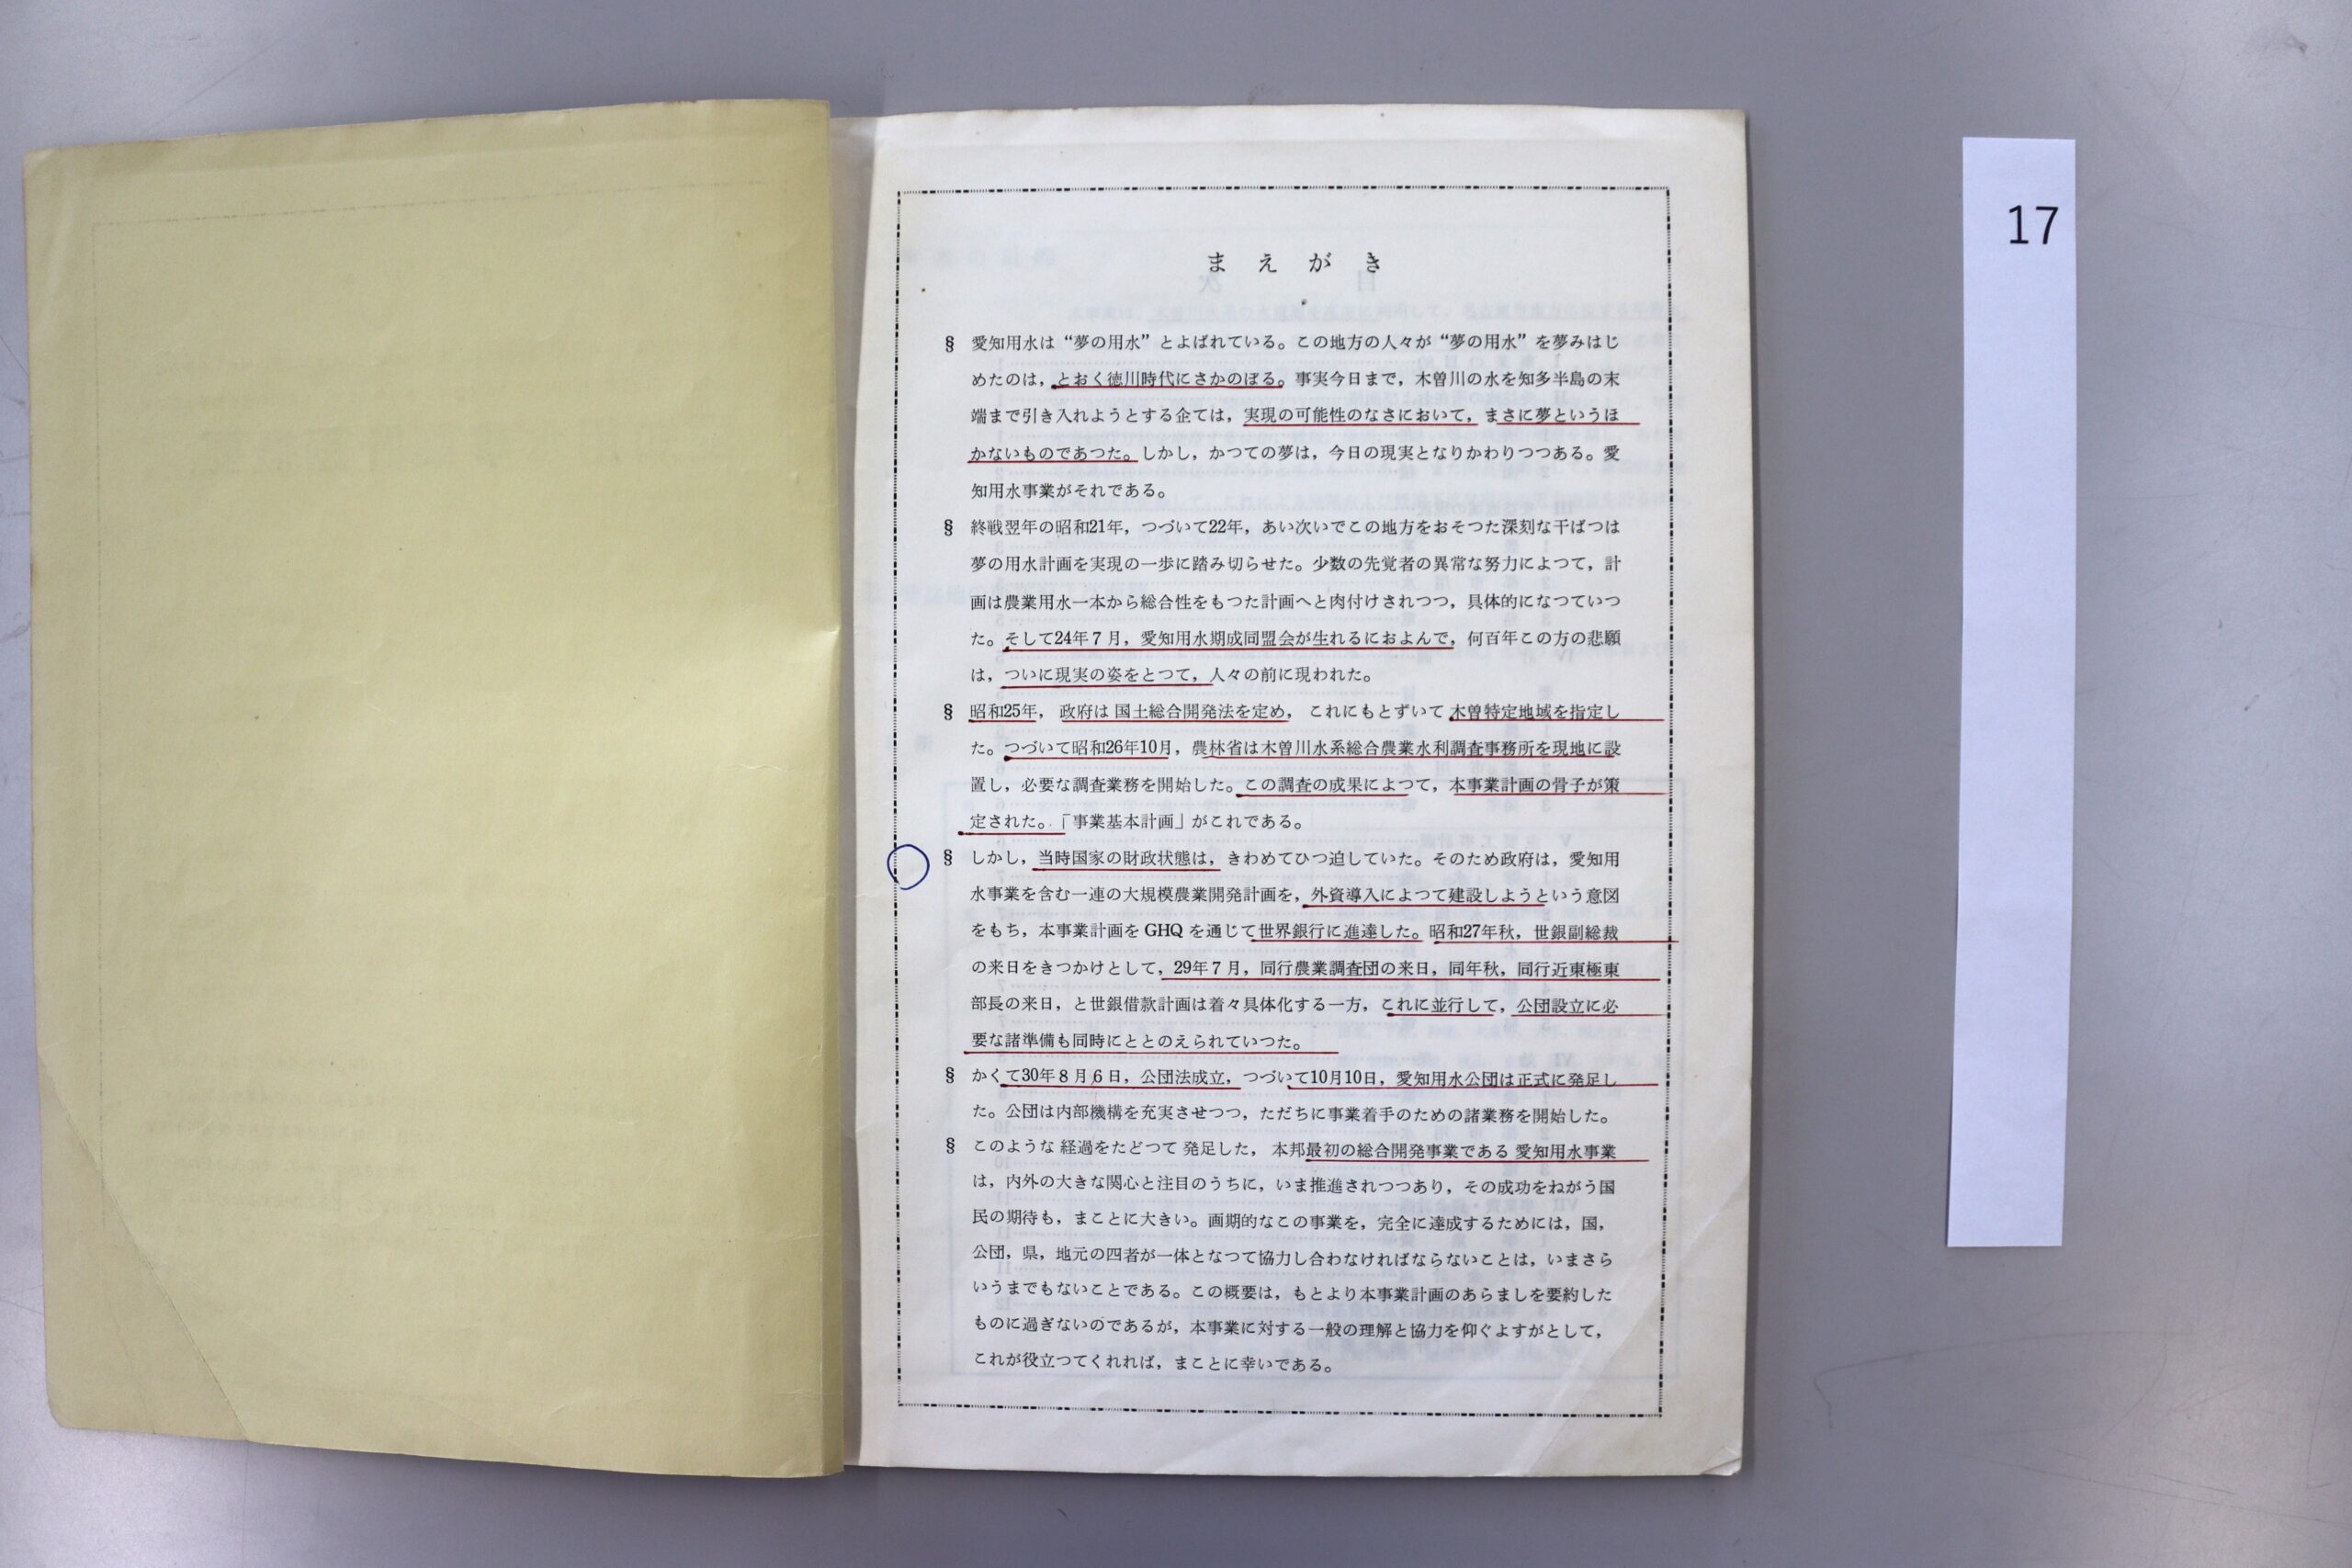 まえがき
§ 愛知用水は“夢の用水”とよばれている。この地方の人々が“夢の用水”を夢みはじ
めたのは，とおく徳川時代にさかのぼる。事実今日まで，木曽川の水を知多半島の末
端まで引き入れようとする企ては，実現の可能性のなさにおいて，まさに夢というほ
かないものであつた。しかし，かつての夢は，今日の現実となりかわりつつある。愛
知用水事業がそれである。
§ 終戦翌年の昭和21年，つづいて22年，あい次いでこの地方をおそつた深刻な干ばつは
夢の用水計画を実現の一歩に踏み切らせた。少数の先覚者の異常な努力によつて，計
画は農業用水一本から総合性をもつた計画へと肉付けされつつ，具体的になつていつ
た。そして24年7月，愛知用水期成同盟会が生れるにおよんで，何百年この方の悲願
は，ついに現実の姿をとつて，人々の前に現われた。
§ 昭和25年，政府は国土総合開発法を定め，これにもとずいて木曽特定地域を指定し
た。つづいて昭和26年10月，農林省は木曽川水系総合農業水利調査事務所を現地に設
置し，必要な調査業務を開始した。この調査の成果によつて，本事業計画の骨子が策
定された。「事業基本計画」がこれである。
§ しかし，当時国家の財政状態は，きわめてひつ迫していた。そのため政府は，愛知用
水事業を含む一連の大規模農業開発計画を，外資導入によつて建設しようという意図
をもち，本事業計画をGHQを通じて世界銀行に進達した。昭和27年秋，世銀副総裁
の来日をきつかけとして，29年7月，同行農業調査団の来日，同年秋，同行近東極東
部長の来日，と世銀借款計画は着々具体化する一方，これに並行して，公団設立に必
要な諸準備も同時にととのえられていつた。
§ かくて30年8月6日，公団法成立，つづいて10月10日，愛知用水公団は正式に発足し
た。公団は内部機構を充実させつつ，ただちに事業着手のための諸業務を開始した。
§ このような経過をたどつて発足した，本邦最初の総合開発事業である愛知用水事業
は，内外の大きな関心と注目のうちに，いま推進されつつあり，その成功をねがう国
民の期待も，まことに大きい。画期的なこの事業を，完全に達成するためには，国，
公団，県，地元の四者が一体となつて協力し合わなければならないことは，いまさら
いうまでもないことである。この概要は，もとより本事業計画のあらましを要約した
ものに過ぎないのであるが，本事業に対する一般の理解と協力を仰ぐよすがとして，
これが役立つてくれれば，まことに幸いである。
17